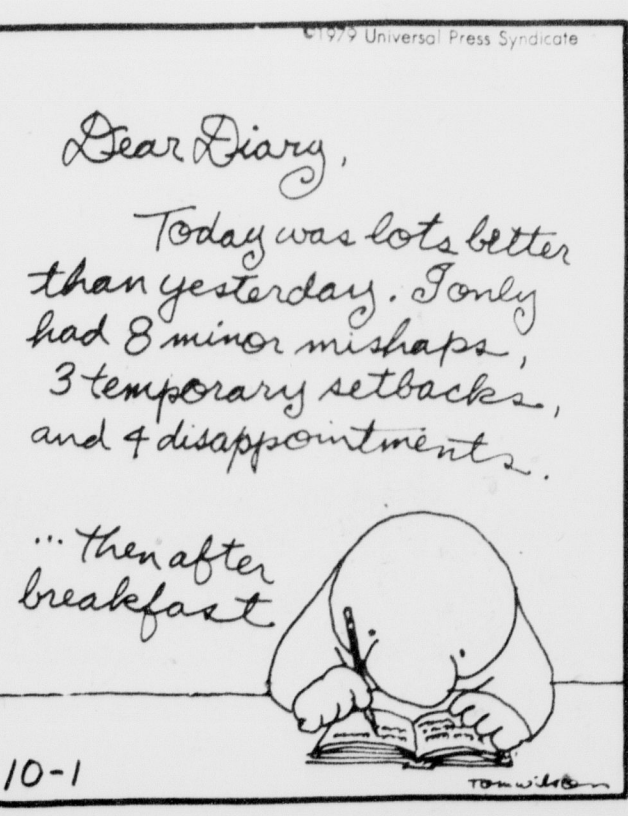 ©1979 Universal Press Syndicate
Dear Diary,
Today was lots better
than yesterday. I only
had 8 minor mishaps,
3 temporary setbacks,
and 4 disappointments.
... then after
breakfast
10-1
Tom Wilson